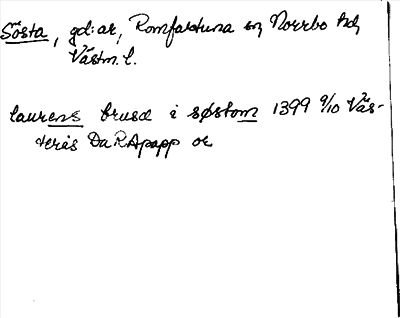 Sösta, gd:ar, Romfartuna sn Norrbo hd,
Västm. l.
laurens brusæ i søstom 1399 9/10 Väs-
terås DaRApapp or